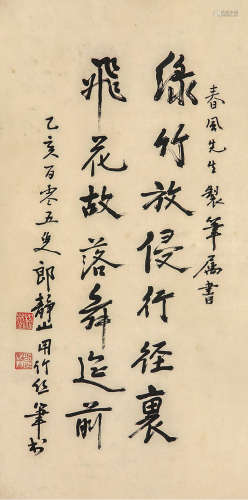 春風先生製筆屬書
綠竹放侵行徑裏
飛花故落舞筵前
乙亥百零五叟郎靜山用竹絲筆書